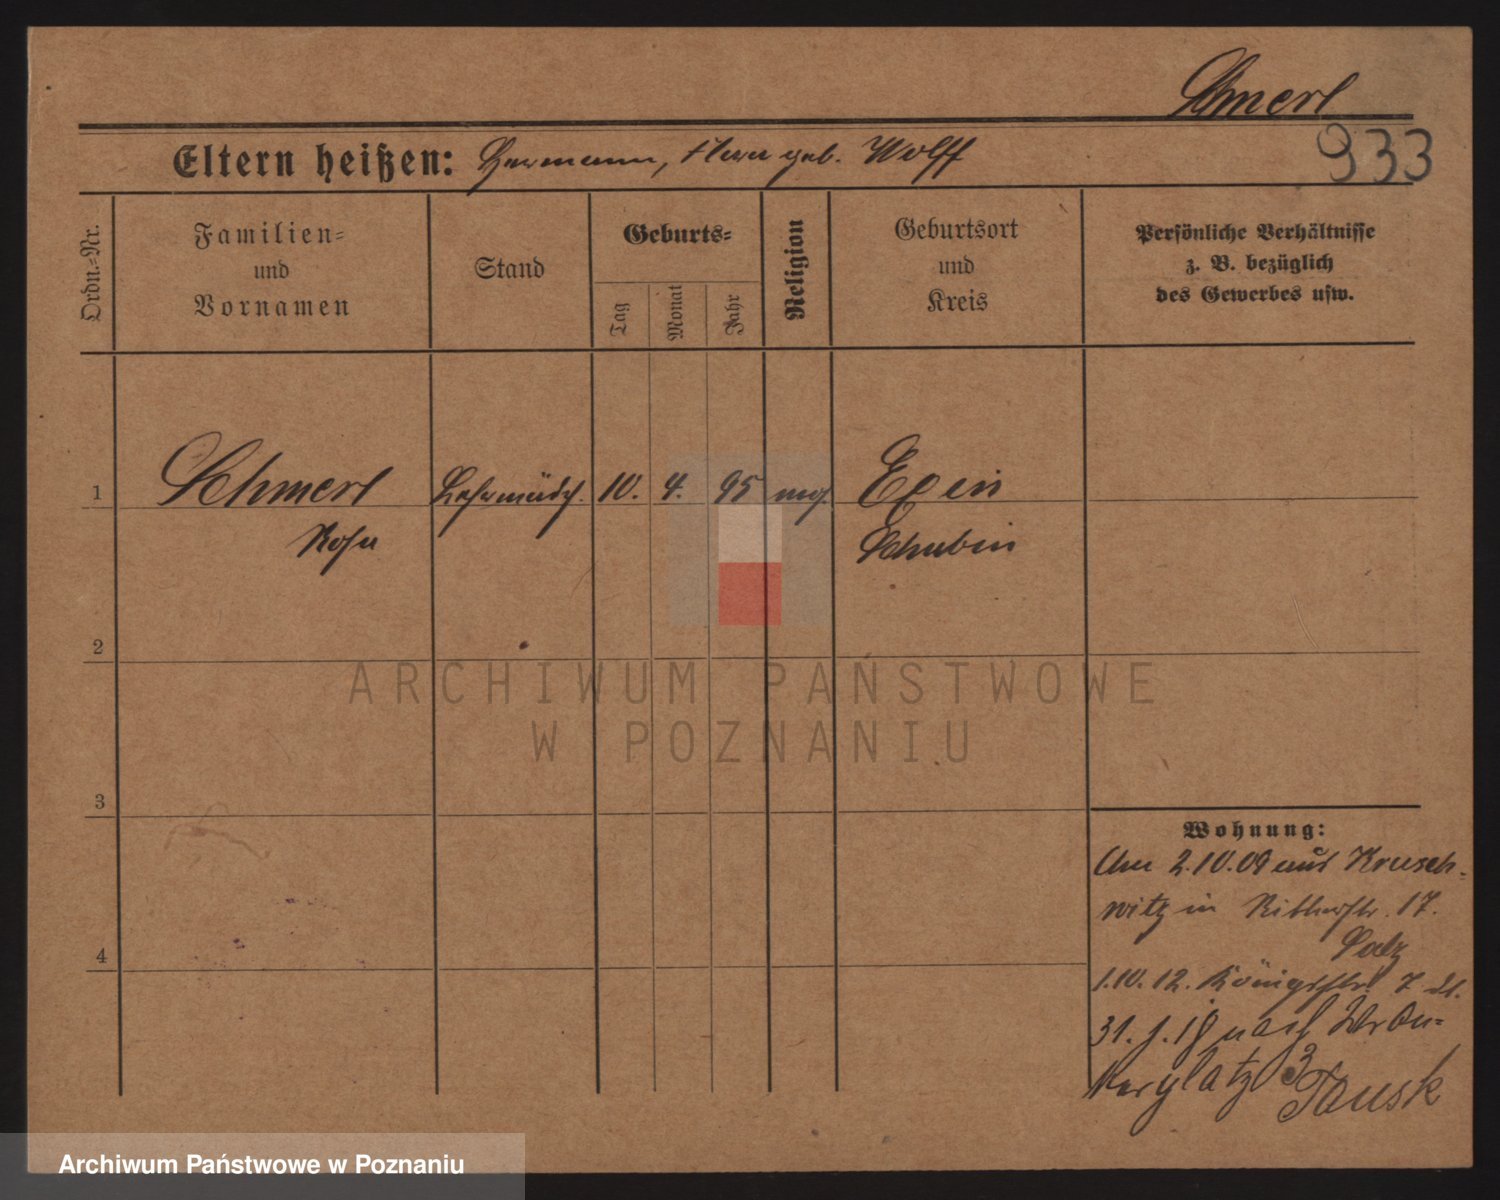 Schmerl
Eltern heißen: Hermann, Flora geb. Wolff
933
Ordn.-Nr.
Familien-
und
Vornamen
Stand
Geburts-
Tag
Monat
Jahr
Religion
Geburtsort
und
Kreis
Persönliche Verhältnisse
z. B. bezüglich
des Gewerbes usw.
1 Schmerl Lehrmädch. 10. 4. 95 Exin
Rosa Schubin
2
3
4
ARCHIWUM PAŃSTWOWE
W POZNANIU
Wohnung:
2.10.09 aus Krusch-
witz in Ritterstr. 17.
1.10.12. Königsstr. 7
nach Wron-
kerplatz 3
Tausk
Archiwum Państwowe w Poznaniu